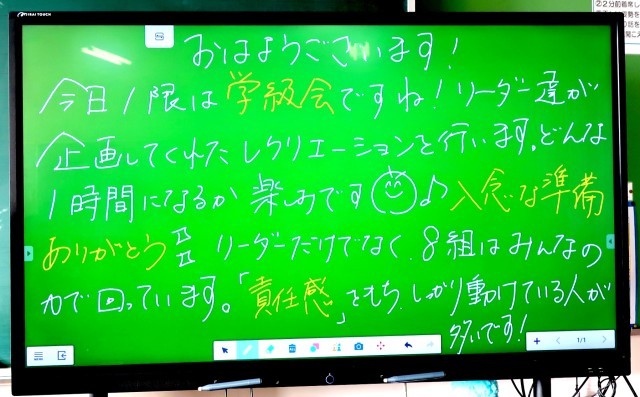 おはようございます!
今日1限は学級会ですね!リーダー達が
企画してくれたレクリエーションを行います。どんな
1時間になるか楽しみです♪入念な準備
ありがとう!!リーダーだけでなく、8組はみんなの
力で回っています。「責任感」をもち、しっかり動けている人が
多いです!
1/1